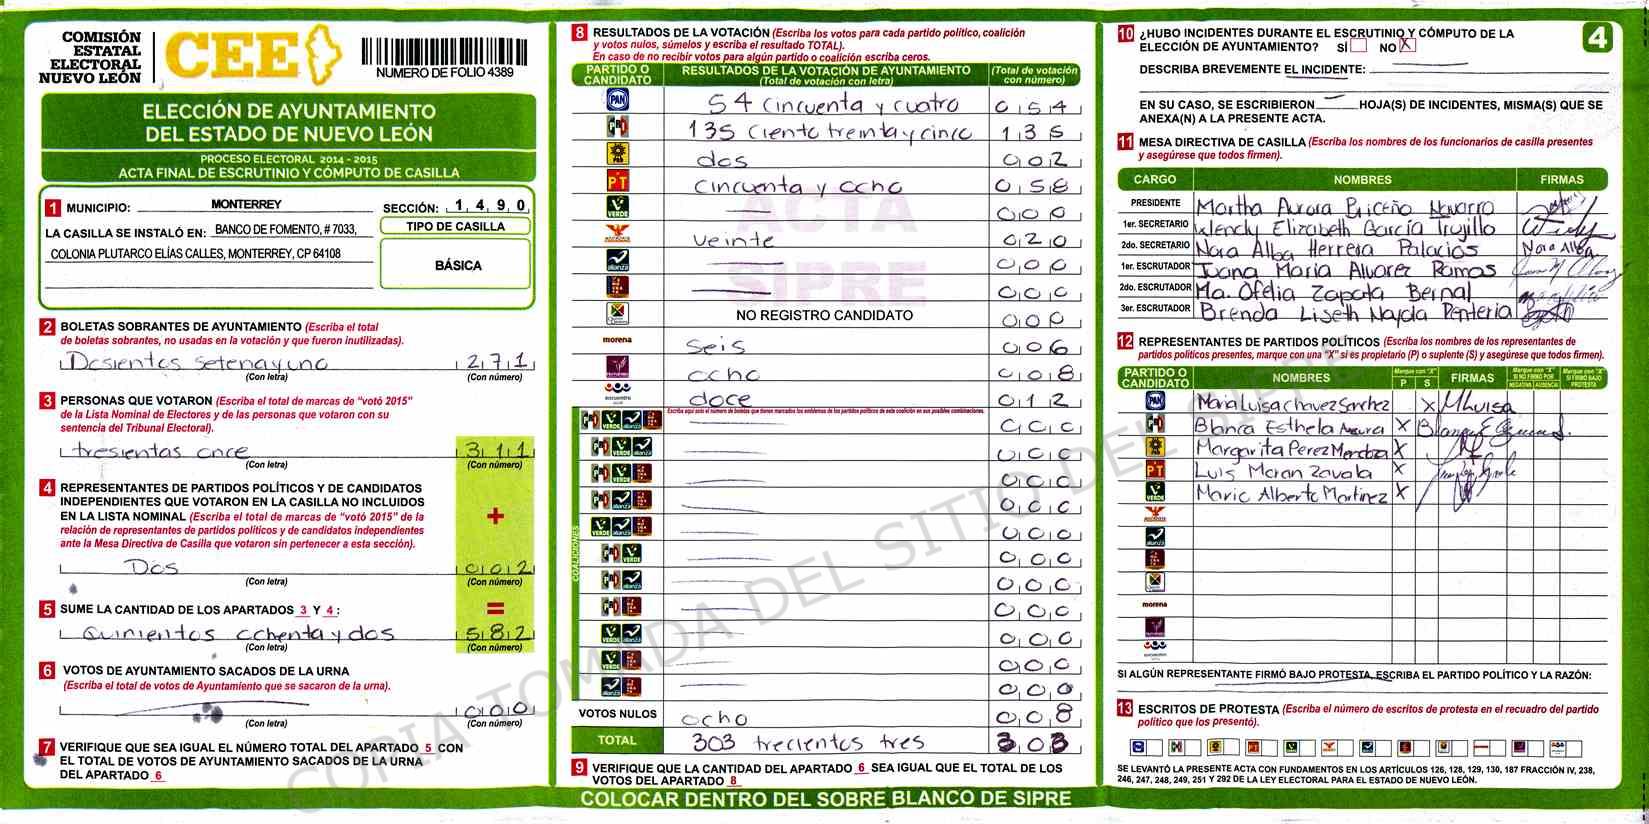 COMISIÓN
ESTATAL
ELECTORAL
NUEVO LEÓN
CEE
NUMERO DE FOLIO 4389
ELECCIÓN DE AYUNTAMIENTO
DEL ESTADO DE NUEVO LEÓN
PROCESO ELECTORAL 2014 - 2015
ACTA FINAL DE ESCRUTINIO Y CÓMPUTO DE CASILLA
1 MUNICIPIO: MONTERREY SECCIÓN: 1,4,9,0
LA CASILLA SE INSTALÓ EN: BANCO DE FOMENTO, # 7033,
COLONIA PLUTARCO ELÍAS CALLES, MONTERREY, CP 64108
TIPO DE CASILLA
BÁSICA
2 BOLETAS SOBRANTES DE AYUNTAMIENTO (Escriba el total
de boletas sobrantes, no usadas en la votación y que fueron inutilizadas).
Dosientos setenayuno 2 7 1
(Con letra) (Con número)
3 PERSONAS QUE VOTARON (Escriba el total de marcas de "votó 2015"
de la Lista Nominal de Electores y de las personas que votaron con su
sentencia del Tribunal Electoral).
tresientas once 3 1 1
(Con letra) (Con número)
4 REPRESENTANTES DE PARTIDOS POLÍTICOS Y DE CANDIDATOS
INDEPENDIENTES QUE VOTARON EN LA CASILLA NO INCLUIDOS
EN LA LISTA NOMINAL (Escriba el total de marcas de "votó 2015" de la
relación de representantes de partidos políticos y de candidatos independientes
ante la Mesa Directiva de Casilla que votaron sin pertenecer a esta sección).
+
Dos 0 0 2
(Con letra) (Con número)
5 SUME LA CANTIDAD DE LOS APARTADOS 3 Y 4 : =
Quinientos ochenta y dos 5 8 2
(Con letra) (Con número)
6 VOTOS DE AYUNTAMIENTO SACADOS DE LA URNA
(Escriba el total de votos de Ayuntamiento que se sacaron de la urna).
0 0 0
(Con letra) (Con número)
7 VERIFIQUE QUE SEA IGUAL EL NÚMERO TOTAL DEL APARTADO 5 CON
EL TOTAL DE VOTOS DE AYUNTAMIENTO SACADOS DE LA URNA
DEL APARTADO 6
8 RESULTADOS DE LA VOTACIÓN (Escriba los votos para cada partido político, coalición
y votos nulos, súmelos y escriba el resultado TOTAL).
En caso de no recibir votos para algún partido o coalición escriba ceros.
PARTIDO O CANDIDATO RESULTADOS DE LA VOTACIÓN DE AYUNTAMIENTO (Total de votación con letra) (Total de votación con número)
PAN 54 cincuenta y cuatro 0 5 4
PRI 135 Ciento treinta y cinco 1 3 5
PRD dos 0 0 2
PT cincuenta y ocho 0 5 8
VERDE 0 0 0
veinte 0 2 0
alianza 0 0 0
0 0 0
NO REGISTRO CANDIDATO 0 0 0
morena seis 0 0 6
ocho 0 0 8
encuentro doce 0 1 2
Escriba aquí solo el número de boletas que tienen marcados los emblemas de los partidos políticos de esta coalición en sus posibles combinaciones.
COALICIONES
PRI VERDE alianza 0 0 0
PRI VERDE alianza 0 0 0
PRI VERDE 0 0 0
PRI alianza 0 0 0
VERDE alianza 0 0 0
PRI VERDE 0 0 0
PRI alianza 0 0 0
PRI 0 0 0
VERDE alianza 0 0 0
VERDE 0 0 0
alianza 0 0 0
VOTOS NULOS ocho 0 0 8
TOTAL 303 trecientos tres 3 0 3
9 VERIFIQUE QUE LA CANTIDAD DEL APARTADO 6 SEA IGUAL QUE EL TOTAL DE LOS
VOTOS DEL APARTADO 8
COLOCAR DENTRO DEL SOBRE BLANCO DE SIPRE
ACTA
SIPRE
COPIA TOMADA DEL SITIO DEL SIPRE
4
10 ¿HUBO INCIDENTES DURANTE EL ESCRUTINIO Y CÓMPUTO DE LA
ELECCIÓN DE AYUNTAMIENTO? SÍ NO X
DESCRIBA BREVEMENTE EL INCIDENTE:
EN SU CASO, SE ESCRIBIERON HOJA(S) DE INCIDENTES, MISMA(S) QUE SE
ANEXA(N) A LA PRESENTE ACTA.
11 MESA DIRECTIVA DE CASILLA (Escriba los nombres de los funcionarios de casilla presentes
y asegúrese que todos firmen).
CARGO NOMBRES FIRMAS
PRESIDENTE Martha Aurora Briceño Navarro
1er. SECRETARIO Wendy Elizabeth García Trujillo
2do. SECRETARIO Nora Alba Herrera Palacios Nora Alba
1er. ESCRUTADOR Juana María Alvarez Ramos
2do. ESCRUTADOR Ma. Ofelia Zapata Bernal
3er. ESCRUTADOR Brenda Liseth Nayola Renteria
12 REPRESENTANTES DE PARTIDOS POLÍTICOS (Escriba los nombres de los representantes de
partidos políticos presentes, marque con una "X" si es propietario (P) o suplente (S) y asegúrese que todos firmen).
PARTIDO O CANDIDATO NOMBRES Marque con "X" P S FIRMAS Marque con "X" SI NO FIRMÓ POR NEGATIVA AUSENCIA Marque con "X" SI FIRMÓ BAJO PROTESTA
PAN Maria Luisa Chavez Sanchez X MLuisa
PRI Blanca Esthela X
PRD Margarita Perez Mendoza X
PT Luis Moran Zavala X
VERDE Mario Alberto Martinez X
alianza
morena
encuentro
SI ALGÚN REPRESENTANTE FIRMÓ BAJO PROTESTA, ESCRIBA EL PARTIDO POLÍTICO Y LA RAZÓN:
13 ESCRITOS DE PROTESTA (Escriba el número de escritos de protesta en el recuadro del partido
político que los presentó).
SE LEVANTÓ LA PRESENTE ACTA CON FUNDAMENTOS EN LOS ARTÍCULOS 126, 128, 129, 130, 187 FRACCIÓN IV, 238,
246, 247, 248, 249, 251 Y 292 DE LA LEY ELECTORAL PARA EL ESTADO DE NUEVO LEÓN.